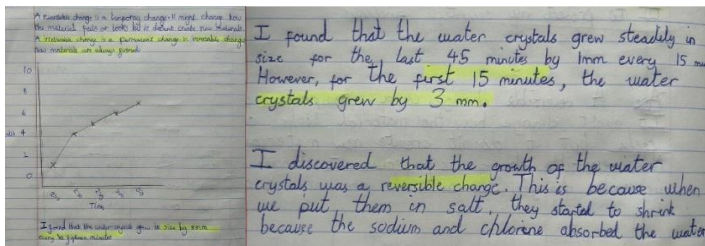 A reversible change is a temporary change. It might change how
the material feels or looks but it doesnt create new materials.
A change is a permanent change. In change
new materials are always formed.
10
8
6
4
2
0
Time
I found that the water crystals grew in size by mm
every minutes
I found that the water crystals grew steadily in
size for the last 45 minutes by 1mm every 15
However, for the first 15 minutes, the water
crystals grew by 3 mm.
I discovered that the growth of the water
crystals was a reversible change. This is because when
we put them in salt, they started to shrink
because the sodium and chlorene absorbed the water